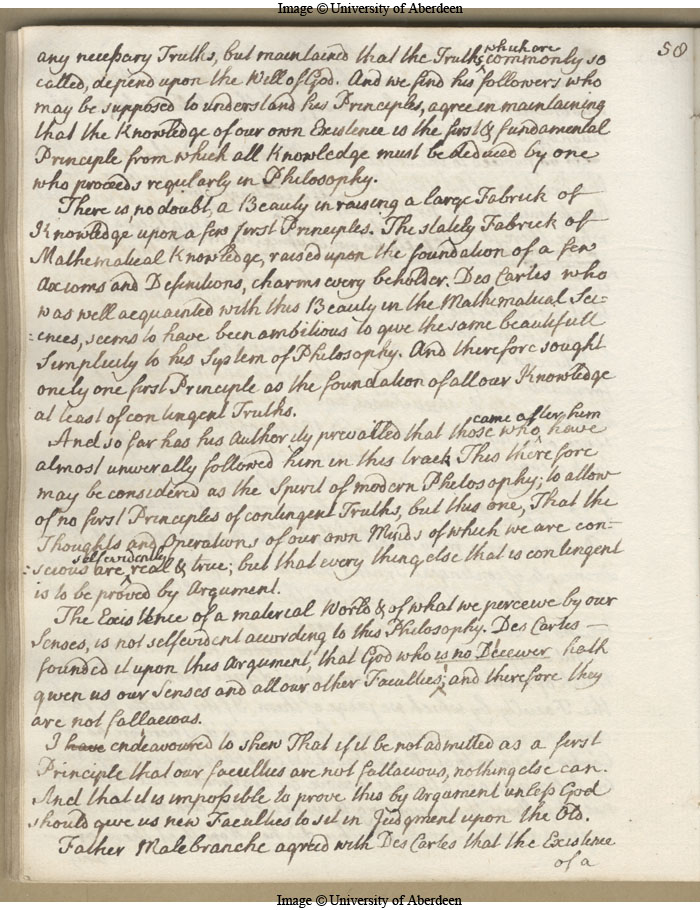 Image © University of Aberdeen
58
any necessary Truths, but maintained that the Truths which are commonly so
called, depend upon the Will of God. And we find his followers who
may be supposed to understand his Principles, agree in maintaining
that the Knowledge of our own Existence is the first & fundamental
Principle from which all Knowledge must be deduced by one
who proceeds regularly in Philosophy.
There is no doubt, a Beauty in raising a large Fabrick of
Knowledge upon a few first Principles. The stately Fabrick of
Mathematical Knowledge, raised upon the foundation of a few
Axioms and Definitions, charms every beholder. Des Cartes who
was well acquainted with this Beauty in the Mathematical Sci=
:ences, seems to have been ambitious to give the same beautifull
Simplicity to his System of Philosophy. And therefore sought
onely one first Principle as the foundation of all our Knowledge
at least of contingent Truths.
And so far has his Authority prevailed that those who came after him have
almost unverally followed him in this track This therefore
may be considered as the Spirit of modern Philosophy; to allow
of no first Principles of contingent Truths, but this one, That the
Thoughts and Operations of our own Minds of which we are con=
:scious are selfevidently real & true; but that every thing else that is contingent
is to be proved by Argument.
The Existence of a material World & of what we perceive by our
Senses, is not selfevident according to this Philosophy. Des Cartes —
founded it upon this Argument, that God who is no Deceiver hath
given us our Senses and all our other Faculties; and therefore they
are not fallacious.
I have endeavoured to shew That if it be not admitted as a first
Principle that our faculties are not fallacious, nothing else can.
And that it is impossible to prove this by Argument unless God
should give us new Faculties to sit in Judgment upon the Old.
Father Malebranche agreed with Des Cartes that the Existence
of a
Image © University of Aberdeen